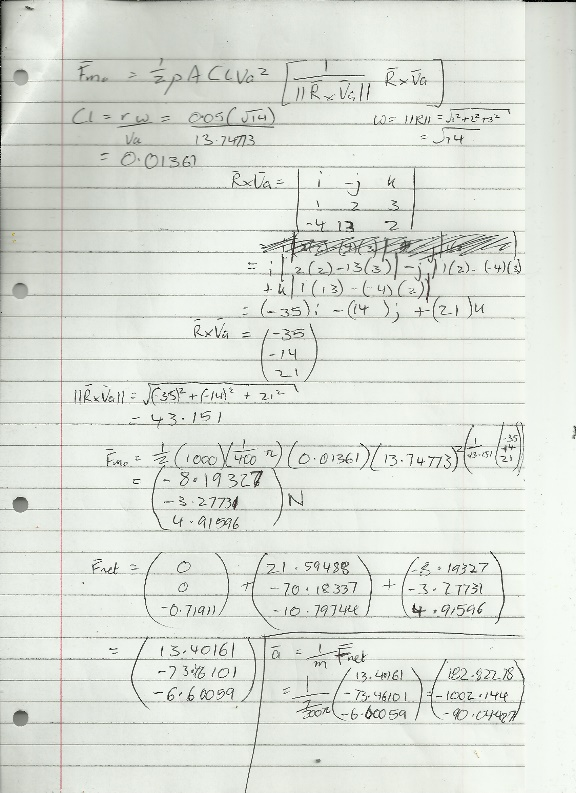 F̄mo = ½ρACLVa² [ 1/||R̄×V̄a|| R̄×V̄a ]
CL = rω/Va = 0.05(√14)/13.74773 ω = ||R|| = √(1²+2²+3²)
= 0.01361 = √14
R̄×V̄a = | i -j k |
| 1 2 3 |
| -4 13 2 |
= i |2(2)-13(3)| -j |1(2)-(-4)(3)|
+k |1(13)-(-4)(2)|
= (-35)i -(14)j +(21)k
R̄×V̄a = (-35
-14
21)
||R̄×V̄a|| = √((-35)²+(-14)²+21²)
= 43.151
F̄mo = ½(1000)(1/400 π)(0.01361)(13.74773)² (1/43.151 (-35 -14 21))
= (-8.19327
-3.27731
4.91596) N
F̄net = (0 0 -0.71911) + (21.59488 -70.18337 -10.79744) + (-8.19327 -3.27731 4.91596)
= (13.40161
-73.46101
-6.60059)
ā = 1/m F̄net
= (13.40161 -73.46101 -6.60059) = (182.82278 -1002.144 -90.04427)